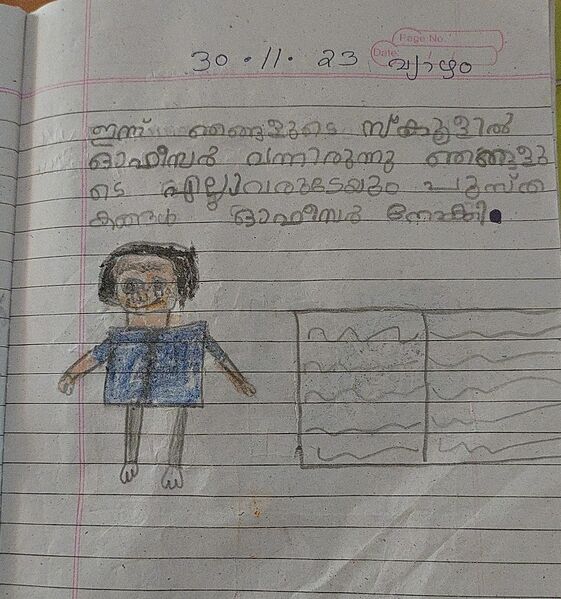 Page No.
Date:
30.11.23 വ്യാഴം
ഇന്ന് ഞങ്ങളുടെ സ്കൂളിൽ
ഓഫീസർ വന്നിരുന്നു ഞങ്ങളു
ടെ എല്ലാവരുടേയും പുസ്ത
കങ്ങൾ ഓഫീസർ നോക്കി.